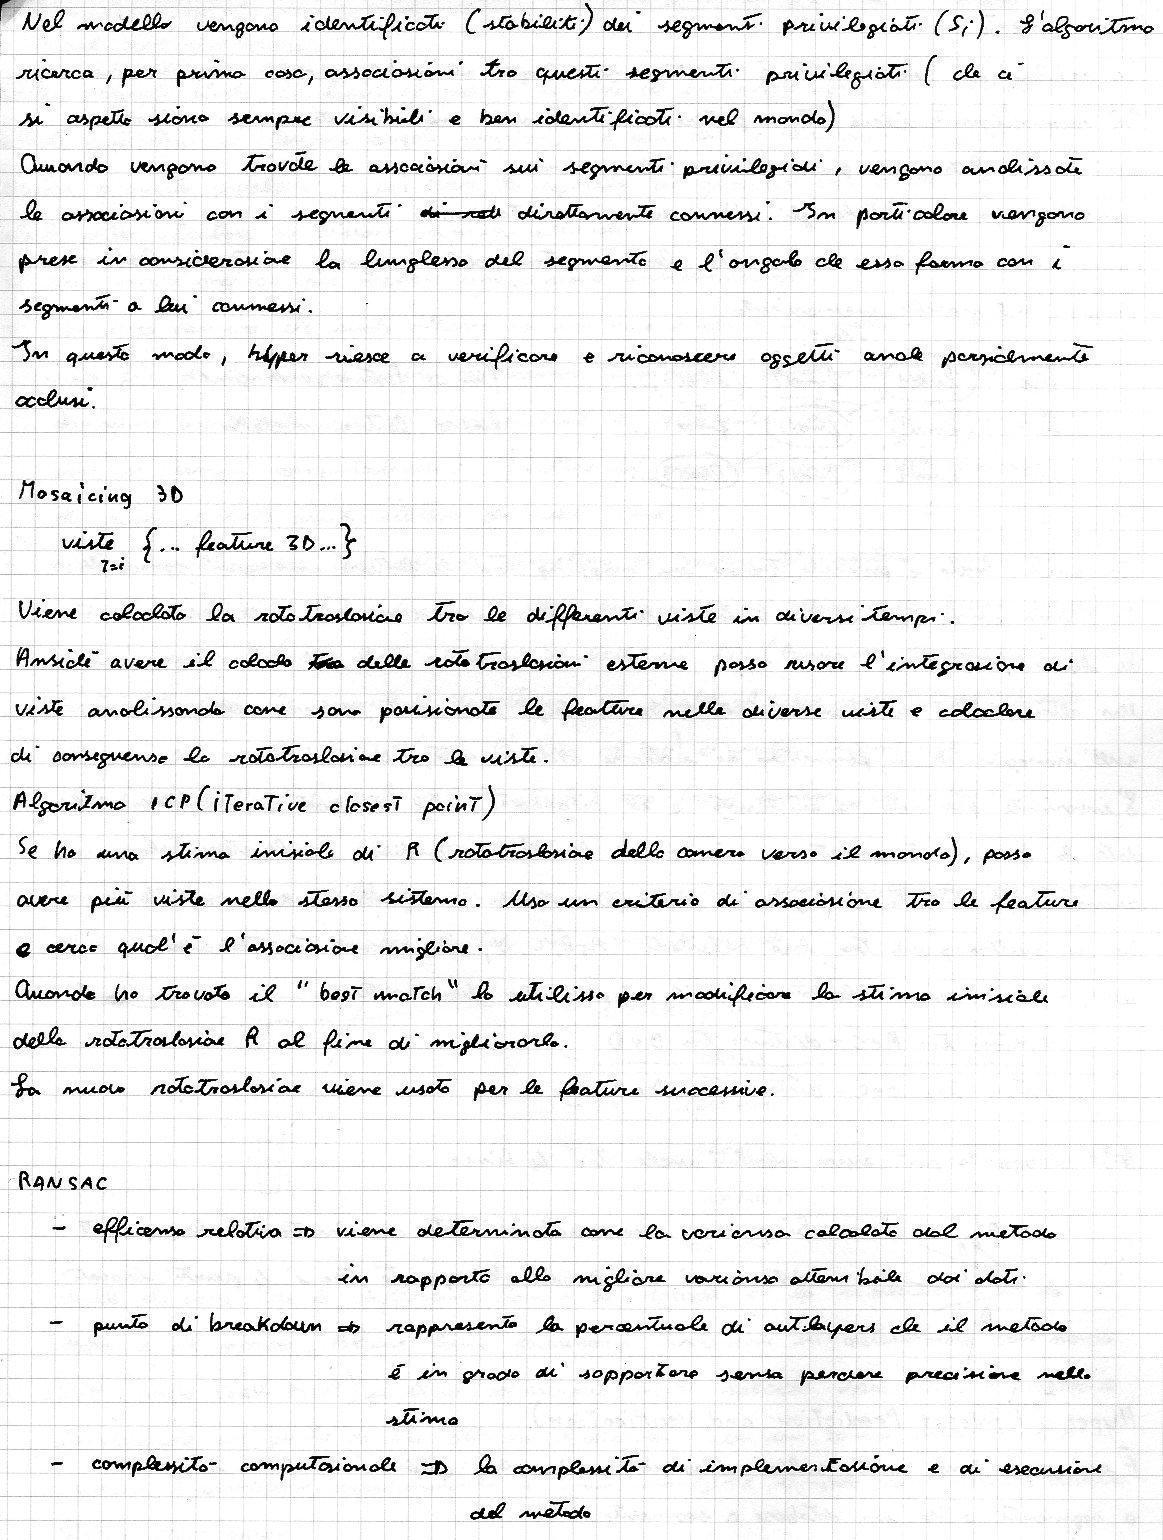 Nel modello vengono identificati (stabiliti) dei segmenti privilegiati (Si). L'algoritmo
ricerca, per prima cosa, associazioni tra questi segmenti privilegiati (che ci
si aspetta siano sempre visibili e ben identificati nel mondo)
Quando vengono trovate le associazioni sui segmenti privilegiati, vengono analizzate
le associazioni con i segmenti direttamente connessi. In particolare vengono
prese in considerazione la lunghezza del segmento e l'angolo che esso forma con i
segmenti a lui connessi.
In questo modo, hyper riesce a verificare e riconoscere oggetti anche parzialmente
occlusi.
Mosaicing 3D
viste {... feature 3D...}
Viene calcolata la rototraslazione tra le differenti viste in diversi tempi.
Anziché avere il calcolo delle rototraslazioni esterne posso usare l'integrazione di
viste analizzando come sono posizionate le feature nelle diverse viste e calcolare
di conseguenza la rototraslazione tra le viste.
Algoritmo ICP (iterative closest point)
Se ho una stima iniziale di R (rototraslazione della camera verso il mondo), posso
avere più viste nello stesso sistema. Uso un criterio di associazione tra le feature
e cerco qual'è l'associazione migliore.
Quando ho trovato il "best match" lo utilizzo per modificare la stima iniziale
della rototraslazione R al fine di migliorarla.
La nuova rototraslazione viene usata per le feature successive.
RANSAC
- efficenza relativa => viene determinata come la varianza calcolata dal metodo
in rapporto alla migliore varianza ottenibile dai dati
- punto di breakdown => rappresenta la percentuale di outlayers che il metodo
è in grado di sopportare senza perdere precisione nella
stima
- complessità computazionale => la complessità di implementazione e di esecuzione
del metodo